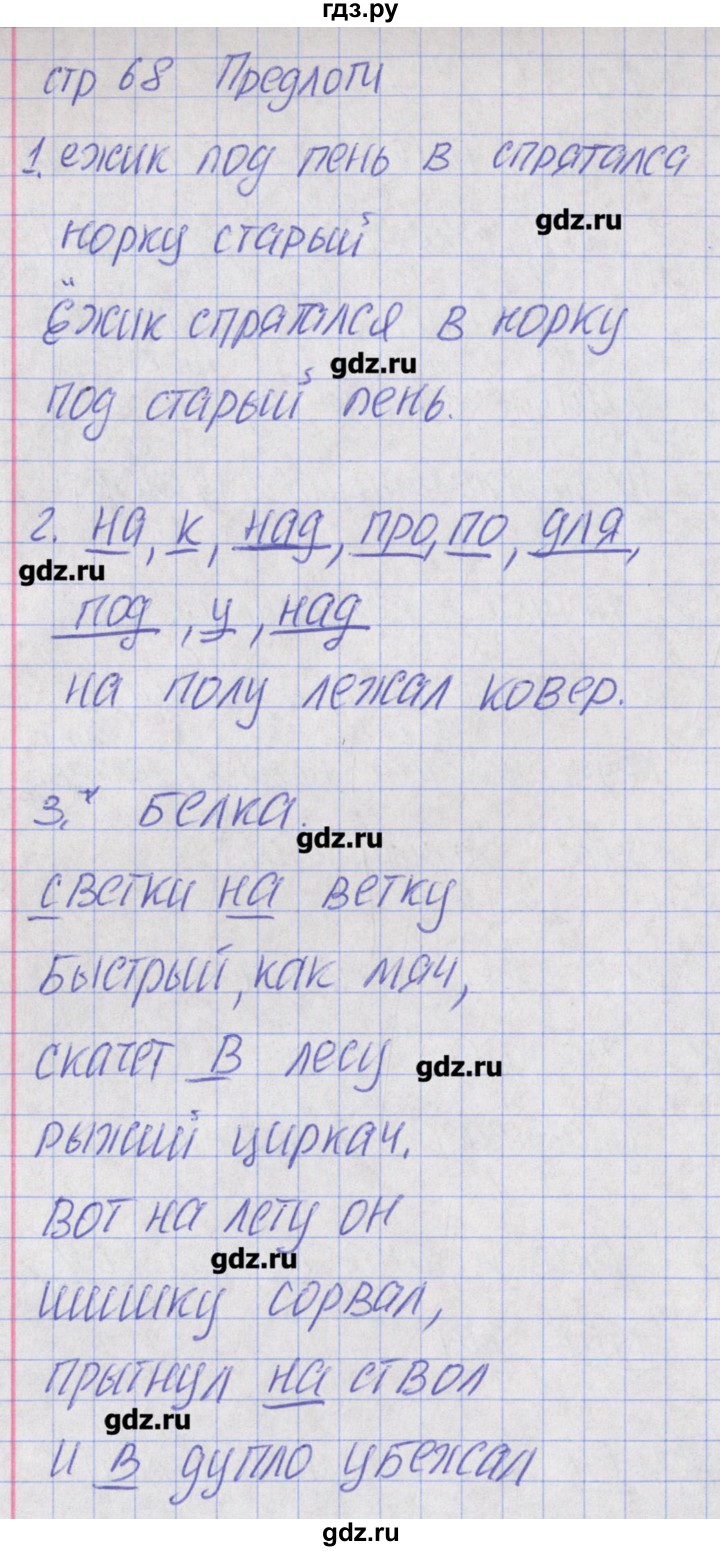 гдз.ру
стр 68 Предлоги
1. ежик под пень в спрятался
gdz.ru
норку старый
Ёжик спрятался в норку
gdz.ru
под старый пень.
2. на, к, над, про, по, для,
gdz.ru
под, у, над
на полу лежал ковер.
3.* Белка.
gdz.ru
с ветки на ветку
Быстрый, как мяч,
скачет в лесу
gdz.ru
рыжий циркач.
Вот на лету он
gdz.ru
шишку сорвал,
прыгнул на ствол
gdz.ru
и в дупло убежал
gdz.ru